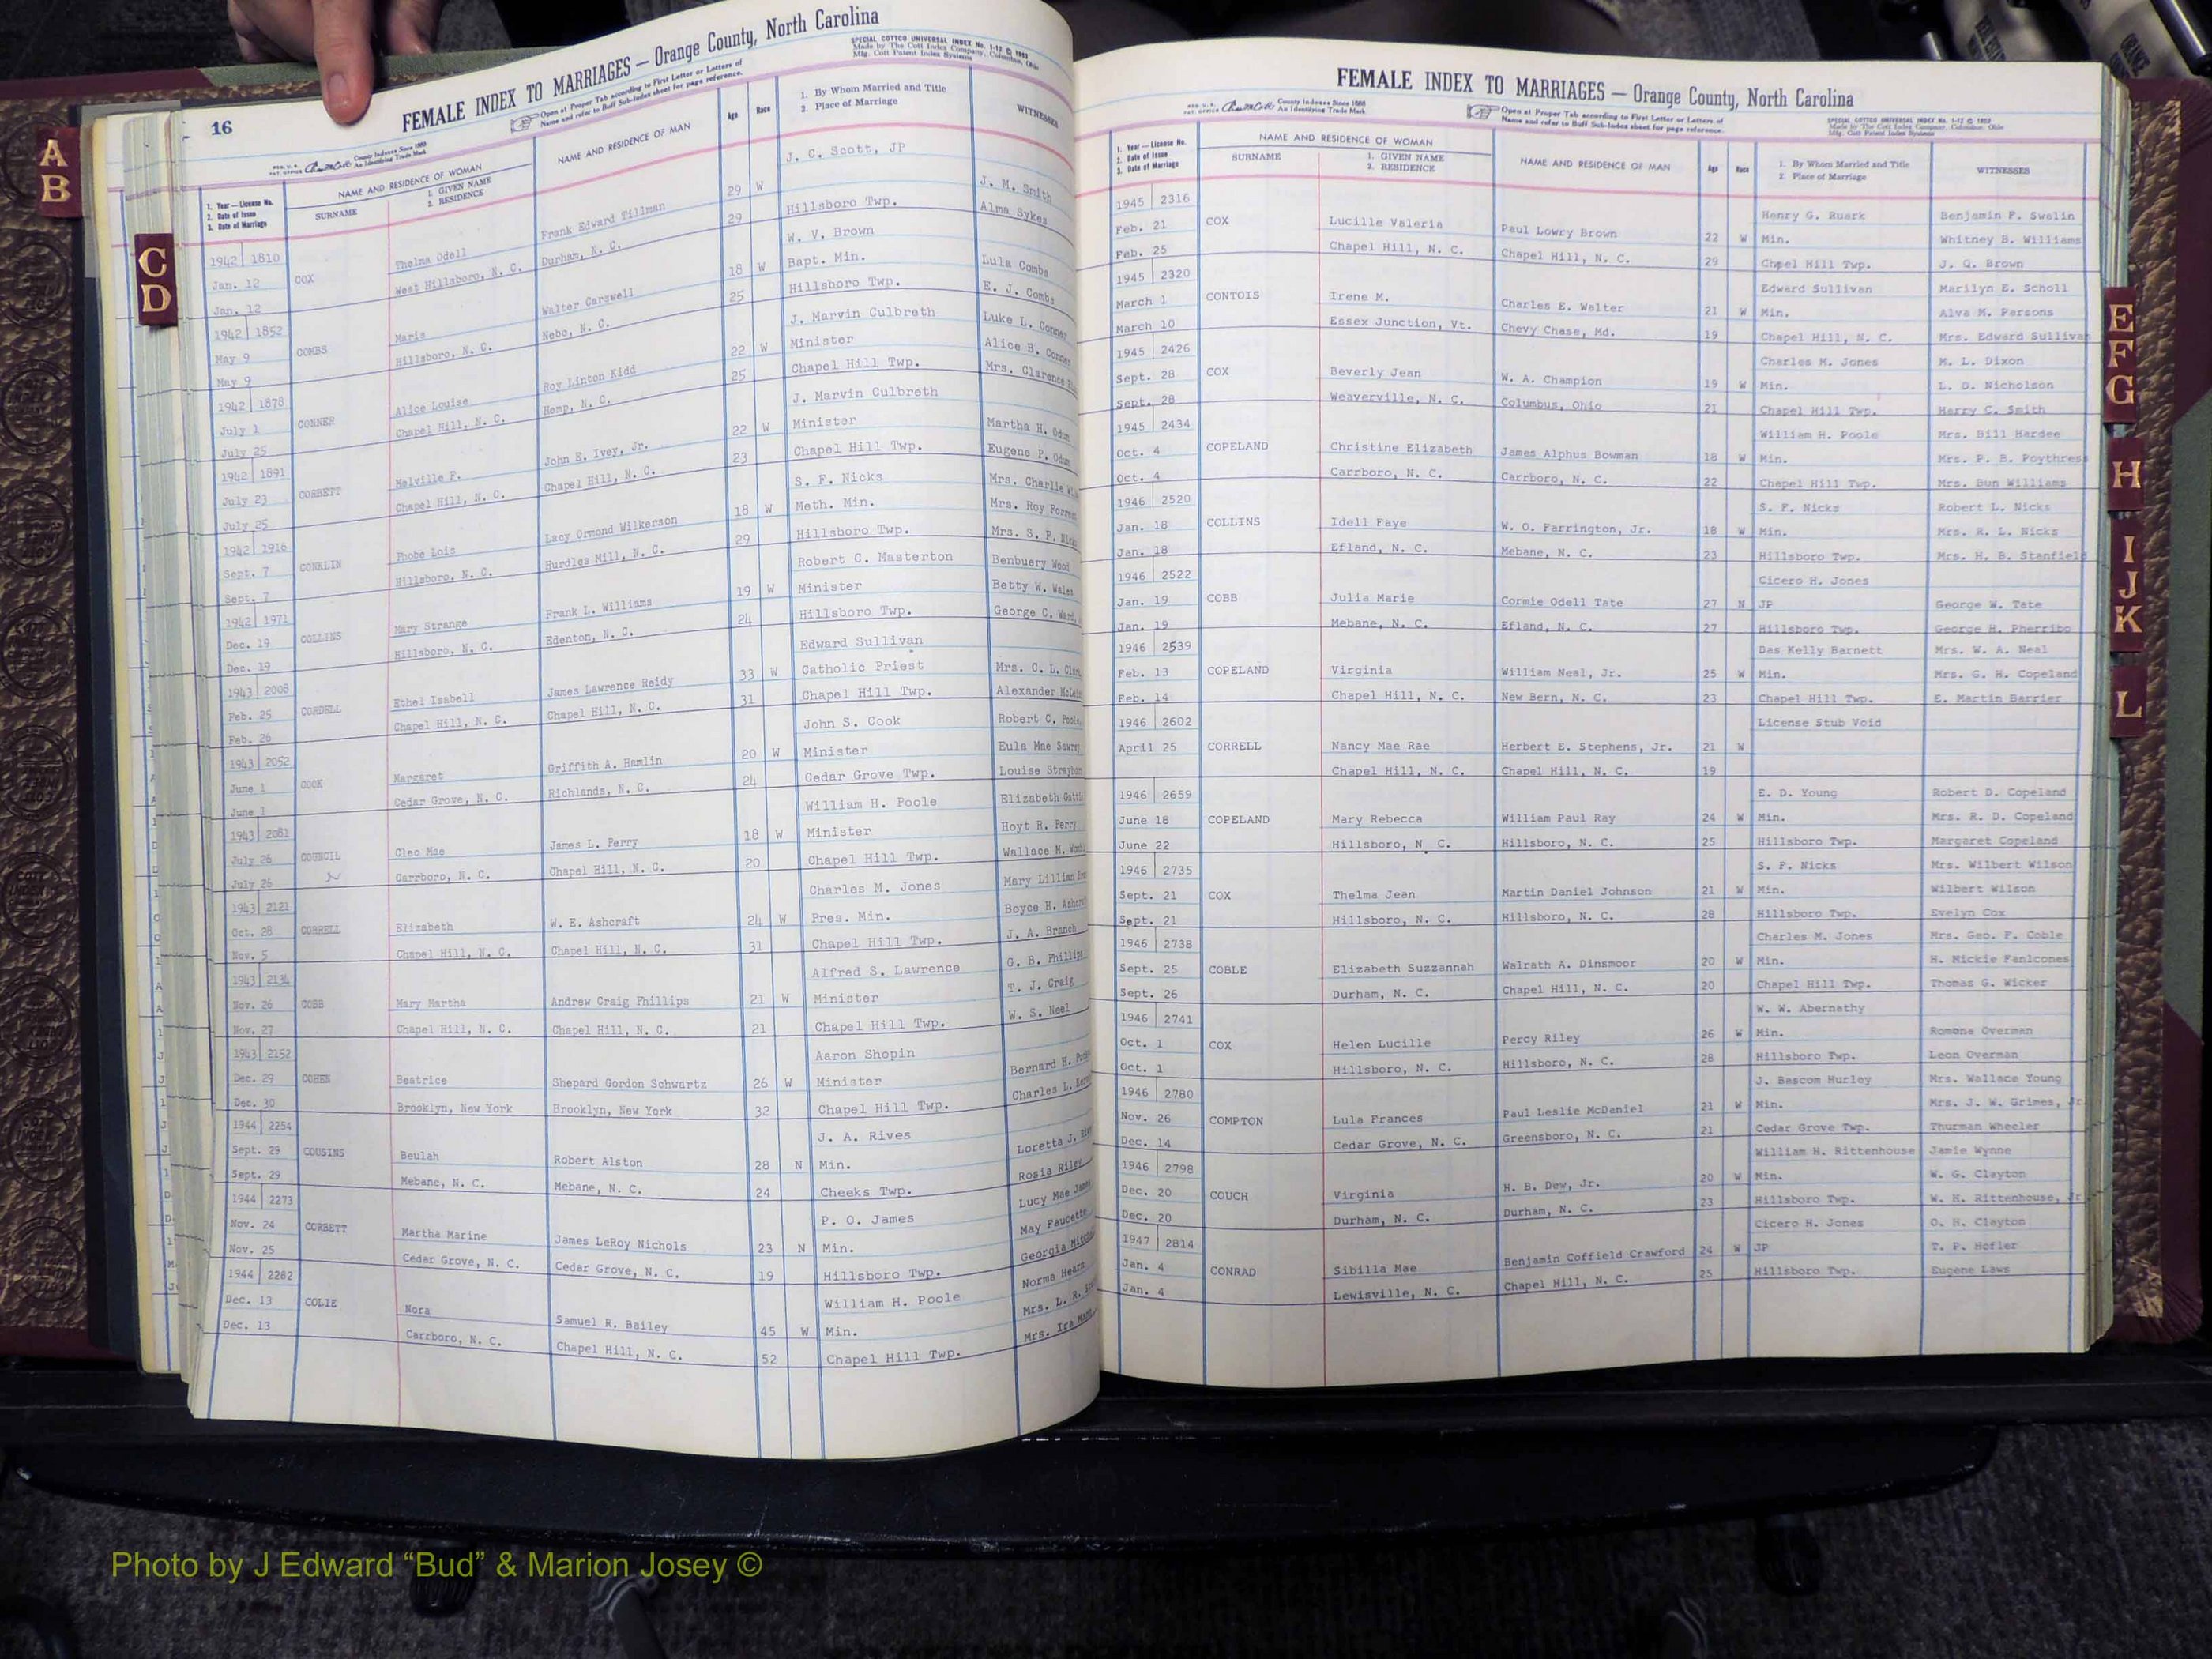 16
FEMALE INDEX TO MARRIAGES — Orange County, North Carolina
SPECIAL COTTCO UNIVERSAL INDEX No. 1-12 © 1953
Made by The Cott Index Company, Columbus, Ohio
Mfg. Cott Patent Index Systems
County Indexes Since 1888
An Identifying Trade Mark
Open at Proper Tab according to First Letter or Letters of
Name and refer to Buff Sub-Index sheet for page reference.
1. Year — License No.
2. Date of Issue
3. Date of Marriage
NAME AND RESIDENCE OF WOMAN
SURNAME
1. GIVEN NAME
2. RESIDENCE
NAME AND RESIDENCE OF MAN
Age
Race
1. By Whom Married and Title
2. Place of Marriage
WITNESSES
J. C. Scott, JP
1942 1810 Thelma Odell Frank Edward Tillman 29 W J. M. Smith
Jan. 12 COX West Hillsboro, N. C. Durham, N. C. 29 Hillsboro Twp. Alma Sykes
Jan. 12 W. V. Brown
1942 1852 Maria Walter Carswell 18 W Bapt. Min. Lula Combs
May 9 COMBS Hillsboro, N. C. Nebo, N. C. 25 Hillsboro Twp. E. J. Combs
May 9 J. Marvin Culbreth Luke L. Conner
1942 1878 Alice Louise Roy Linton Kidd 22 W Minister Alice B. Conner
July 1 CONNER Chapel Hill, N. C. Hemp, N. C. 25 Chapel Hill Twp. Mrs. Clarence
July 25 J. Marvin Culbreth
1942 1891 Melville F. John E. Ivey, Jr. 22 W Minister Martha H. Odum
July 23 CORBETT Chapel Hill, N. C. Chapel Hill, N. C. 23 Chapel Hill Twp. Eugene P. Odum
July 25 S. F. Nicks Mrs. Charlie
1942 1916 Phobe Lois Lacy Ormond Wilkerson 18 W Meth. Min. Mrs. Roy
Sept. 7 CONKLIN Hillsboro, N. C. Hurdles Mill, N. C. 29 Hillsboro Twp. Mrs. S. F. Nicks
Sept. 7 Robert C. Masterton Benbuery Wood
1942 1971 Mary Strange Frank L. Williams 19 W Minister Betty W. Wales
Dec. 19 COLLINS Hillsboro, N. C. Edenton, N. C. 24 Hillsboro Twp. George C. Ward,
Dec. 19 Edward Sullivan
1943 2008 Ethel Isabell James Lawrence Reidy 33 W Catholic Priest Mrs. C. L.
Feb. 25 CORDELL Chapel Hill, N. C. Chapel Hill, N. C. 31 Chapel Hill Twp. Alexander
Feb. 26 John S. Cook Robert C.
1943 2052 Margaret Griffith A. Hamlin 20 W Minister Eula Mae
June 1 COOK Cedar Grove, N. C. Richlands, N. C. 24 Cedar Grove Twp. Louise
June 1 William H. Poole Elizabeth
1943 2081 Cleo Mae James L. Perry 18 W Minister Hoyt R. Perry
July 26 COUNCIL Carrboro, N. C. Chapel Hill, N. C. 20 Chapel Hill Twp. Wallace M.
July 26 Charles M. Jones Mary Lillian
1943 2121 Elizabeth W. E. Ashcraft 24 W Pres. Min. Boyce H.
Oct. 28 CORRELL Chapel Hill, N. C. Chapel Hill, N. C. 31 Chapel Hill Twp. J. A. Branch
Nov. 5 Alfred S. Lawrence G. B. Phillips
1943 2134 Mary Martha Andrew Craig Phillips 21 W Minister T. J. Craig
Nov. 26 COBB Chapel Hill, N. C. Chapel Hill, N. C. 21 Chapel Hill Twp. W. S. Neel
Nov. 27 Aaron Shopin
1943 2152 Beatrice Shepard Gordon Schwartz 26 W Minister Bernard H.
Dec. 29 COHEN Brooklyn, New York Brooklyn, New York 32 Chapel Hill Twp. Charles L.
Dec. 30 J. A. Rives
1944 2254 Beulah Robert Alston 28 N Min. Loretta J.
Sept. 29 COUSINS Mebane, N. C. Mebane, N. C. 24 Cheeks Twp. Rosia Riley
Sept. 29 P. O. James Lucy Mae
1944 2273 Martha Marine James LeRoy Nichols 23 N Min. May Faucette
Nov. 24 CORBETT Cedar Grove, N. C. Cedar Grove, N. C. 19 Hillsboro Twp. Georgia
Nov. 25 William H. Poole Norma Hearn
1944 2282 Nora Samuel R. Bailey 45 W Min. Mrs. L. R.
Dec. 13 COLIE Carrboro, N. C. Chapel Hill, N. C. 52 Chapel Hill Twp. Mrs. Ira
Dec. 13
FEMALE INDEX TO MARRIAGES — Orange County, North Carolina
County Indexes Since 1888
An Identifying Trade Mark
Open at Proper Tab according to First Letter or Letters of
Name and refer to Buff Sub-Index sheet for page reference.
SPECIAL COTTCO UNIVERSAL INDEX No. 1-12 © 1953
Made by The Cott Index Company, Columbus, Ohio
Mfg. Cott Patent Index Systems
1. Year — License No.
2. Date of Issue
3. Date of Marriage
NAME AND RESIDENCE OF WOMAN
SURNAME
1. GIVEN NAME
2. RESIDENCE
NAME AND RESIDENCE OF MAN
Age
Race
1. By Whom Married and Title
2. Place of Marriage
WITNESSES
1945 2316 Henry G. Ruark Benjamin F. Swalin
Feb. 21 COX Lucille Valeria Paul Lowry Brown 22 W Min. Whitney B. Williams
Feb. 25 Chapel Hill, N. C. Chapel Hill, N. C. 29 Chpel Hill Twp. J. G. Brown
1945 2320 Edward Sullivan Marilyn E. Scholl
March 1 CONTOIS Irene M. Charles E. Walter 21 W Min. Alva M. Persons
March 10 Essex Junction, Vt. Chevy Chase, Md. 19 Chapel Hill, N. C. Mrs. Edward Sullivan
1945 2426 Charles M. Jones M. L. Dixon
Sept. 28 COX Beverly Jean W. A. Champion 19 W Min. L. D. Nicholson
Sept. 28 Weaverville, N. C. Columbus, Ohio 21 Chapel Hill Twp. Harry C. Smith
1945 2434 William H. Poole Mrs. Bill Hardee
Oct. 4 COPELAND Christine Elizabeth James Alphus Bowman 18 W Min. Mrs. P. B. Poythress
Oct. 4 Carrboro, N. C. Carrboro, N. C. 22 Chapel Hill Twp. Mrs. Bun Williams
1946 2520 S. F. Nicks Robert L. Nicks
Jan. 18 COLLINS Idell Faye W. O. Farrington, Jr. 18 W Min. Mrs. R. L. Nicks
Jan. 18 Efland, N. C. Mebane, N. C. 23 Hillsboro Twp. Mrs. H. B. Stanfield
1946 2522 Cicero H. Jones
Jan. 19 COBB Julia Marie Cormie Odell Tate 27 N JP George W. Tate
Jan. 19 Mebane, N. C. Efland, N. C. 27 Hillsboro Twp. George H. Pherribo
1946 2539 Das Kelly Barnett Mrs. W. A. Neal
Feb. 13 COPELAND Virginia William Neal, Jr. 25 W Min. Mrs. G. H. Copeland
Feb. 14 Chapel Hill, N. C. New Bern, N. C. 23 Chapel Hill Twp. E. Martin Barrier
1946 2602 License Stub Void
April 25 CORRELL Nancy Mae Rae Herbert E. Stephens, Jr. 21 W
Chapel Hill, N. C. Chapel Hill, N. C. 19
1946 2659 E. D. Young Robert D. Copeland
June 18 COPELAND Mary Rebecca William Paul Ray 24 W Min. Mrs. R. D. Copeland
June 22 Hillsboro, N. C. Hillsboro, N. C. 25 Hillsboro Twp. Margaret Copeland
1946 2735 S. F. Nicks Mrs. Wilbert Wilson
Sept. 21 COX Thelma Jean Martin Daniel Johnson 21 W Min. Wilbert Wilson
Sept. 21 Hillsboro, N. C. Hillsboro, N. C. 28 Hillsboro Twp. Evelyn Cox
1946 2738 Charles M. Jones Mrs. Geo. F. Coble
Sept. 25 COBLE Elizabeth Suzzannah Walrath A. Dinsmoor 20 W Min. H. Mickie Fanlcones
Sept. 26 Durham, N. C. Chapel Hill, N. C. 20 Chapel Hill Twp. Thomas G. Wicker
1946 2741 W. W. Abernathy
Oct. 1 COX Helen Lucille Percy Riley 26 W Min. Romona Overman
Oct. 1 Hillsboro, N. C. Hillsboro, N. C. 28 Hillsboro Twp. Leon Overman
1946 2780 J. Bascom Hurley Mrs. Wallace Young
Nov. 26 COMPTON Lula Frances Paul Leslie McDaniel 21 W Min. Mrs. J. W. Grimes, Jr
Dec. 14 Cedar Grove, N. C. Greensboro, N. C. 21 Cedar Grove Twp. Thurman Wheeler
1946 2798 William H. Rittenhouse Jamie Wynne
Dec. 20 COUCH Virginia H. B. Dew, Jr. 20 W Min. W. G. Clayton
Dec. 20 Durham, N. C. Durham, N. C. 23 Hillsboro Twp. W. H. Rittenhouse, Jr
1947 2814 Cicero H. Jones O. H. Clayton
Jan. 4 CONRAD Sibilla Mae Benjamin Coffield Crawford 24 W JP T. P. Hofler
Jan. 4 Lewisville, N. C. Chapel Hill, N. C. 25 Hillsboro Twp. Eugene Laws
A
B
C
D
E
F
G
H
I
J
K
L
Photo by J Edward “Bud” & Marion Josey ©